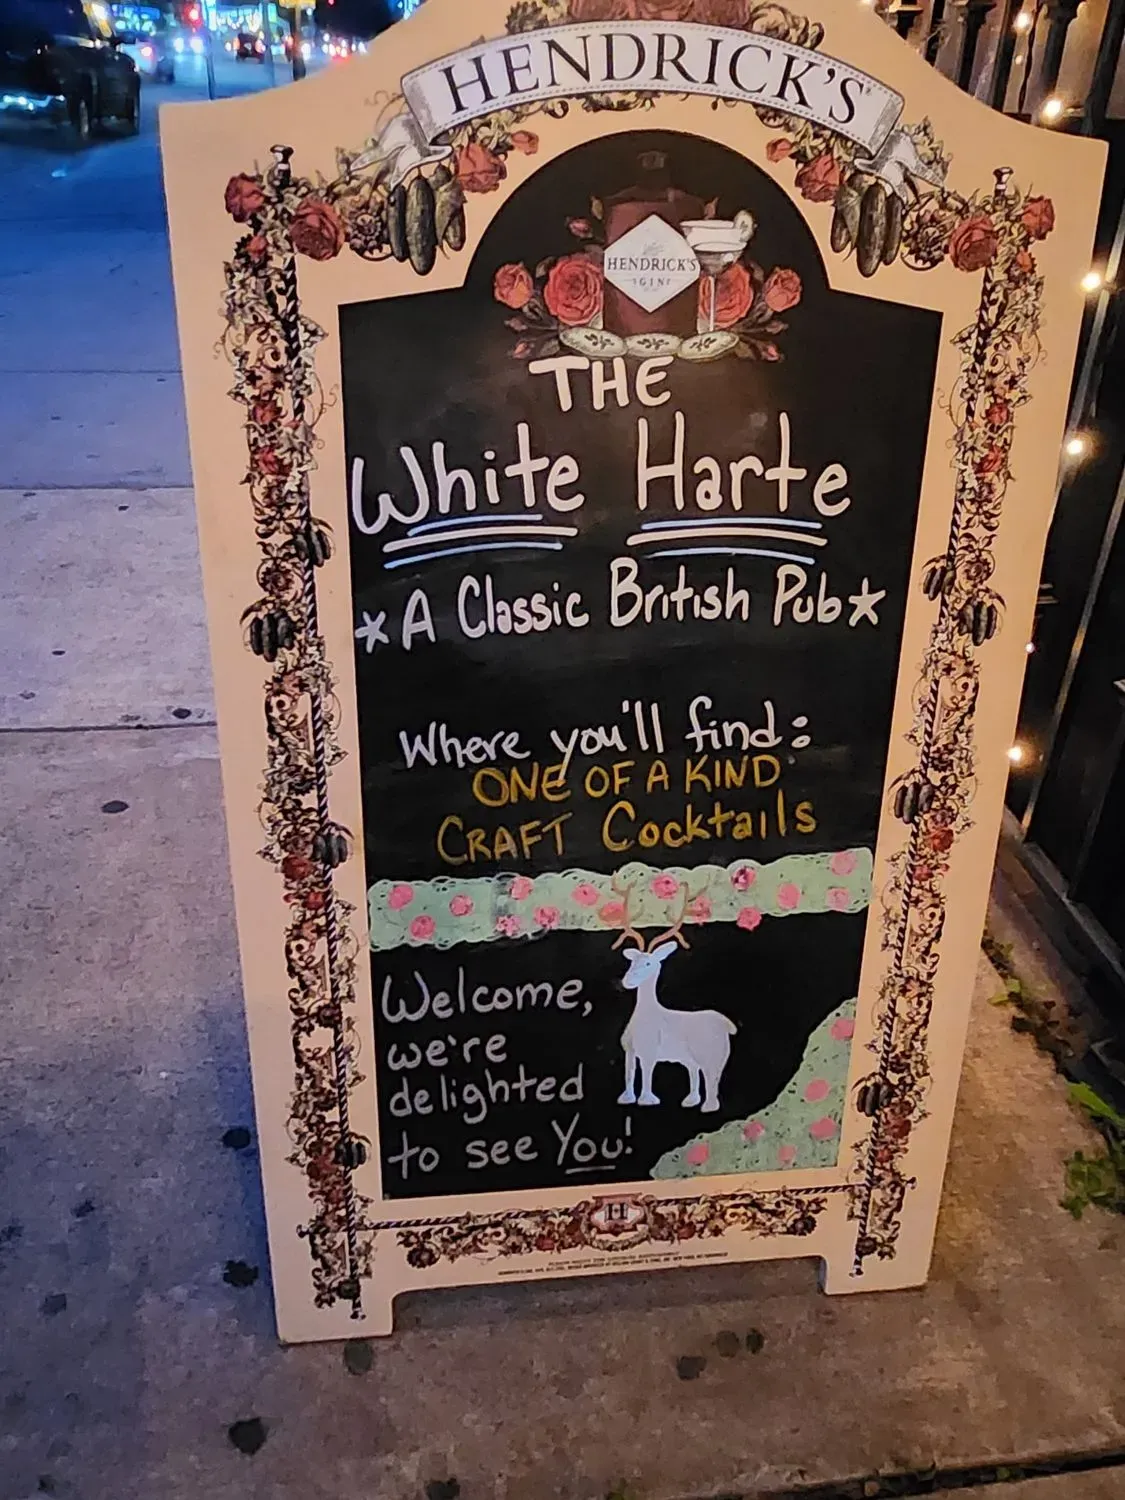 HENDRICK'S
HENDRICK'S
GIN
THE
White Harte
*A Classic British Pub*
Where you'll find:
ONE OF A KIND
CRAFT Cocktails
Welcome,
we're
delighted
to see You!
H